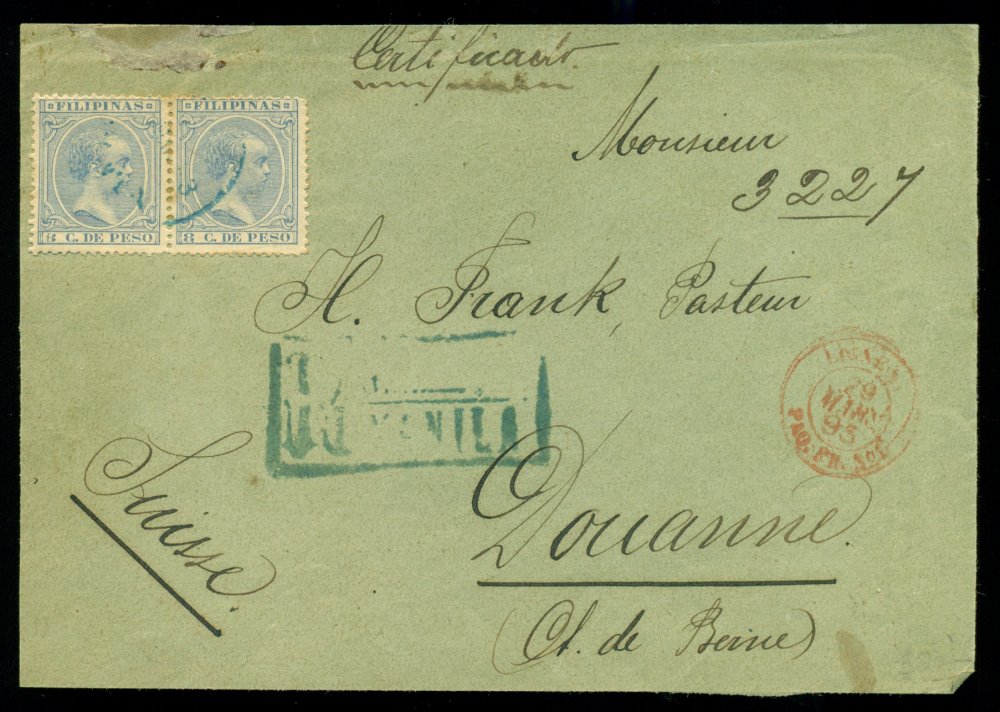 Certificado.
FILIPINAS FILIPINAS
8 C. DE PESO 8 C. DE PESO
Monsieur
3227
H. Frank, Pasteur
MANILA
LIGNE N
29
MARS
95
PAQ. FR. No
Suisse.
Douanne.
(Ct. de Berne)